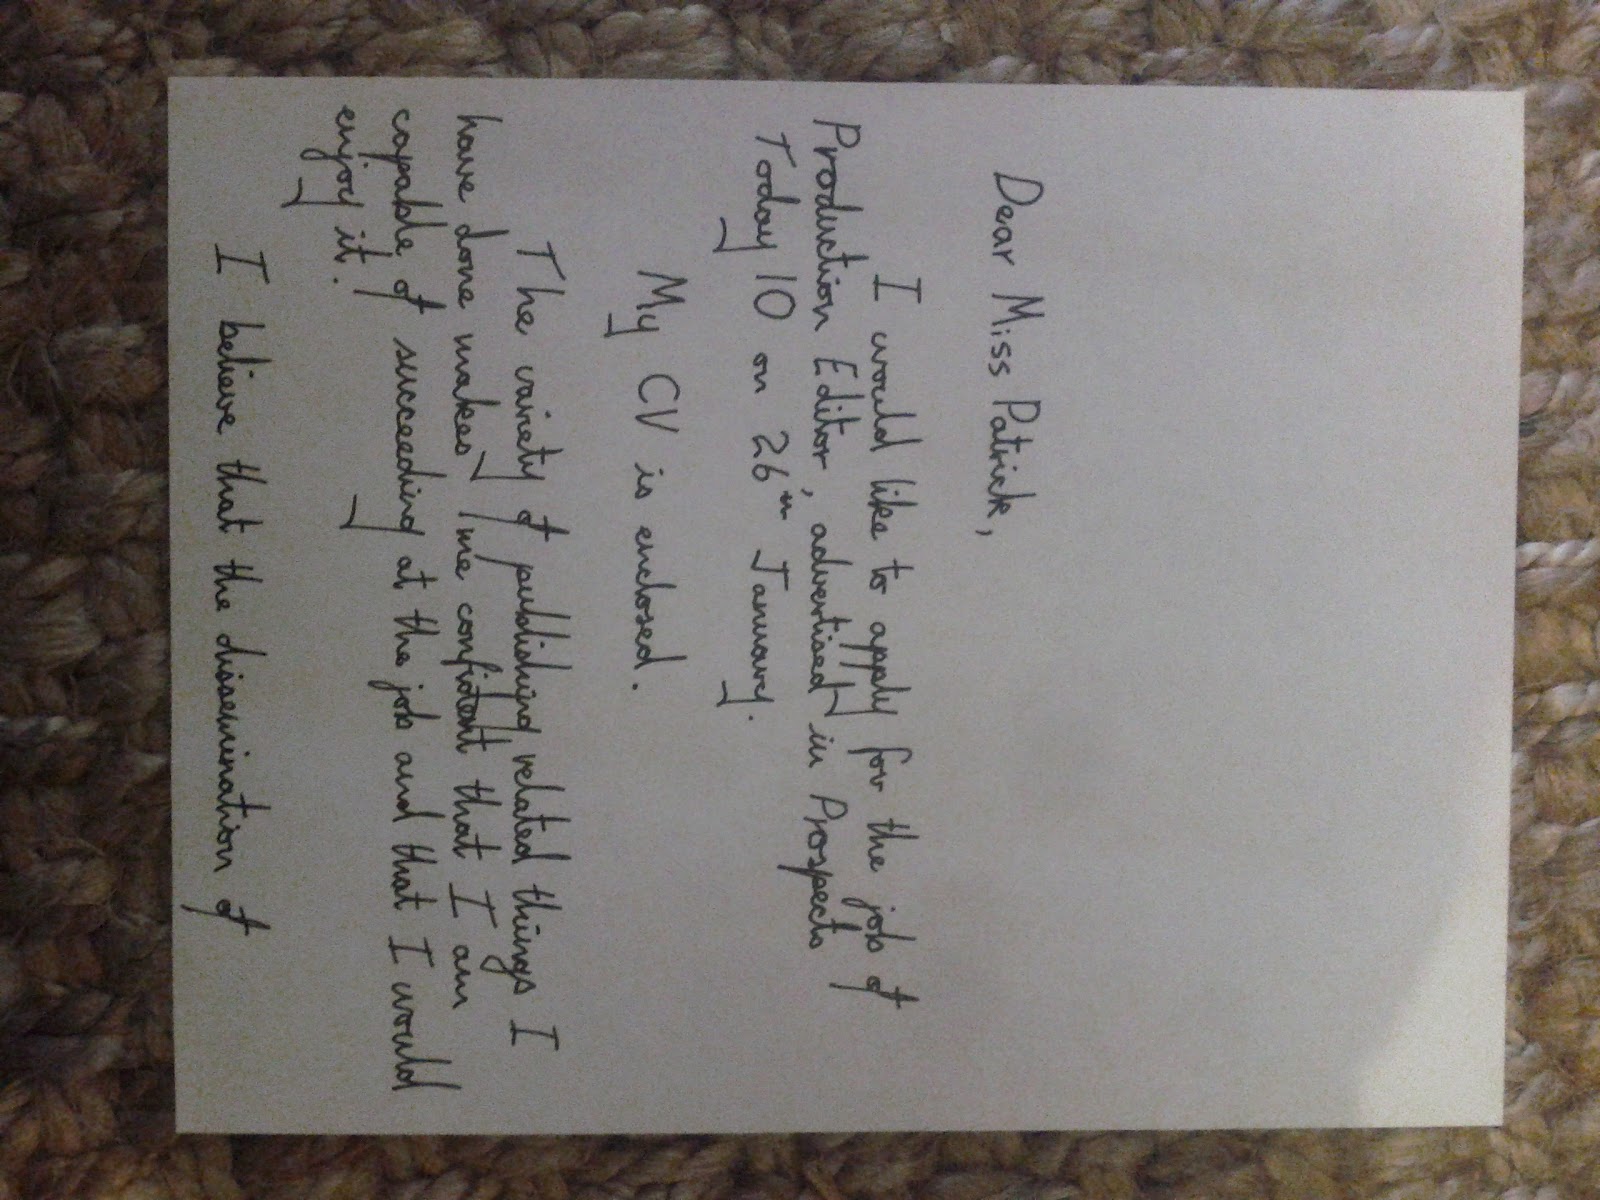 Dear Miss Patrick,
I would like to apply for the job of
Production Editor, advertised in Prospects
Today 10 on 26th January.
My CV is enclosed.
The variety of publishing related things I
have done makes me confident that I am
capable of succeeding at the job and that I would
enjoy it.
I believe that the dissemination of